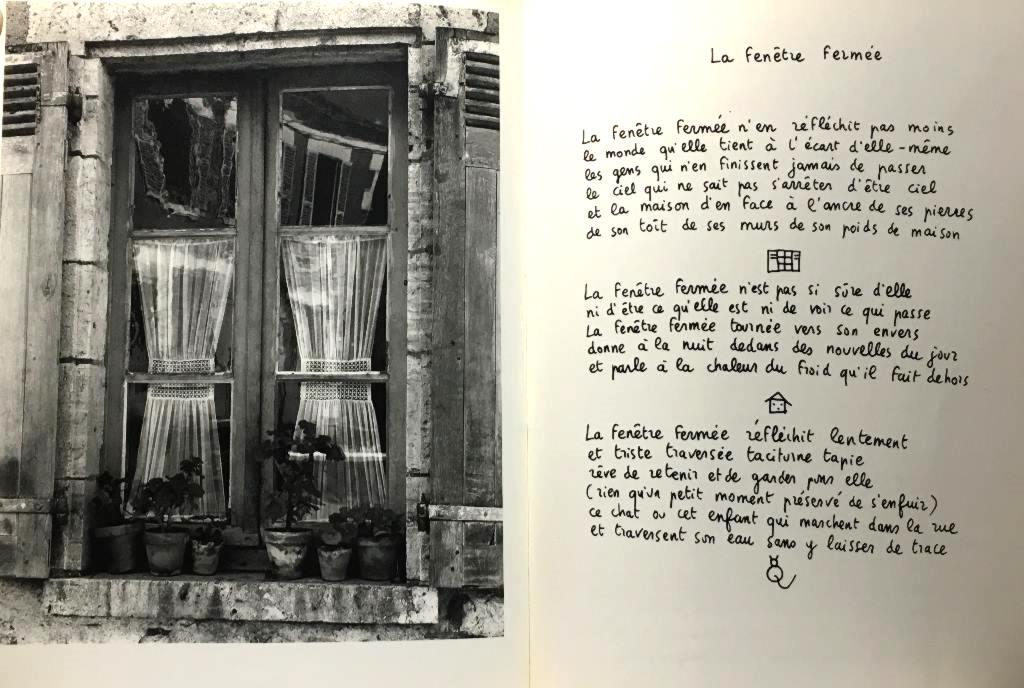 La fenêtre fermée
La fenêtre fermée n'en réfléchit pas moins
le monde qu'elle tient à l'écart d'elle-même
les gens qui n'en finissent jamais de passer
le ciel qui ne sait pas s'arrêter d'être ciel
et la maison d'en face à l'ancre de ses pierres
de son toît de ses murs de son poids de maison
La fenêtre fermée n'est pas si sûre d'elle
ni d'être ce qu'elle est ni de voir ce qui passe
La fenêtre fermée tournée vers son envers
donne à la nuit dedans des nouvelles du jour
et parle à la chaleur du froid qu'il fait dehors
La fenêtre fermée réfléchit lentement
et triste traversée taciturne tapie
rêve de retenir et de garder pour elle
(rien qu'un petit moment préservé de s'enfuir)
ce chat ou cet enfant qui marchent dans la rue
et traversent son eau sans y laisser de trace